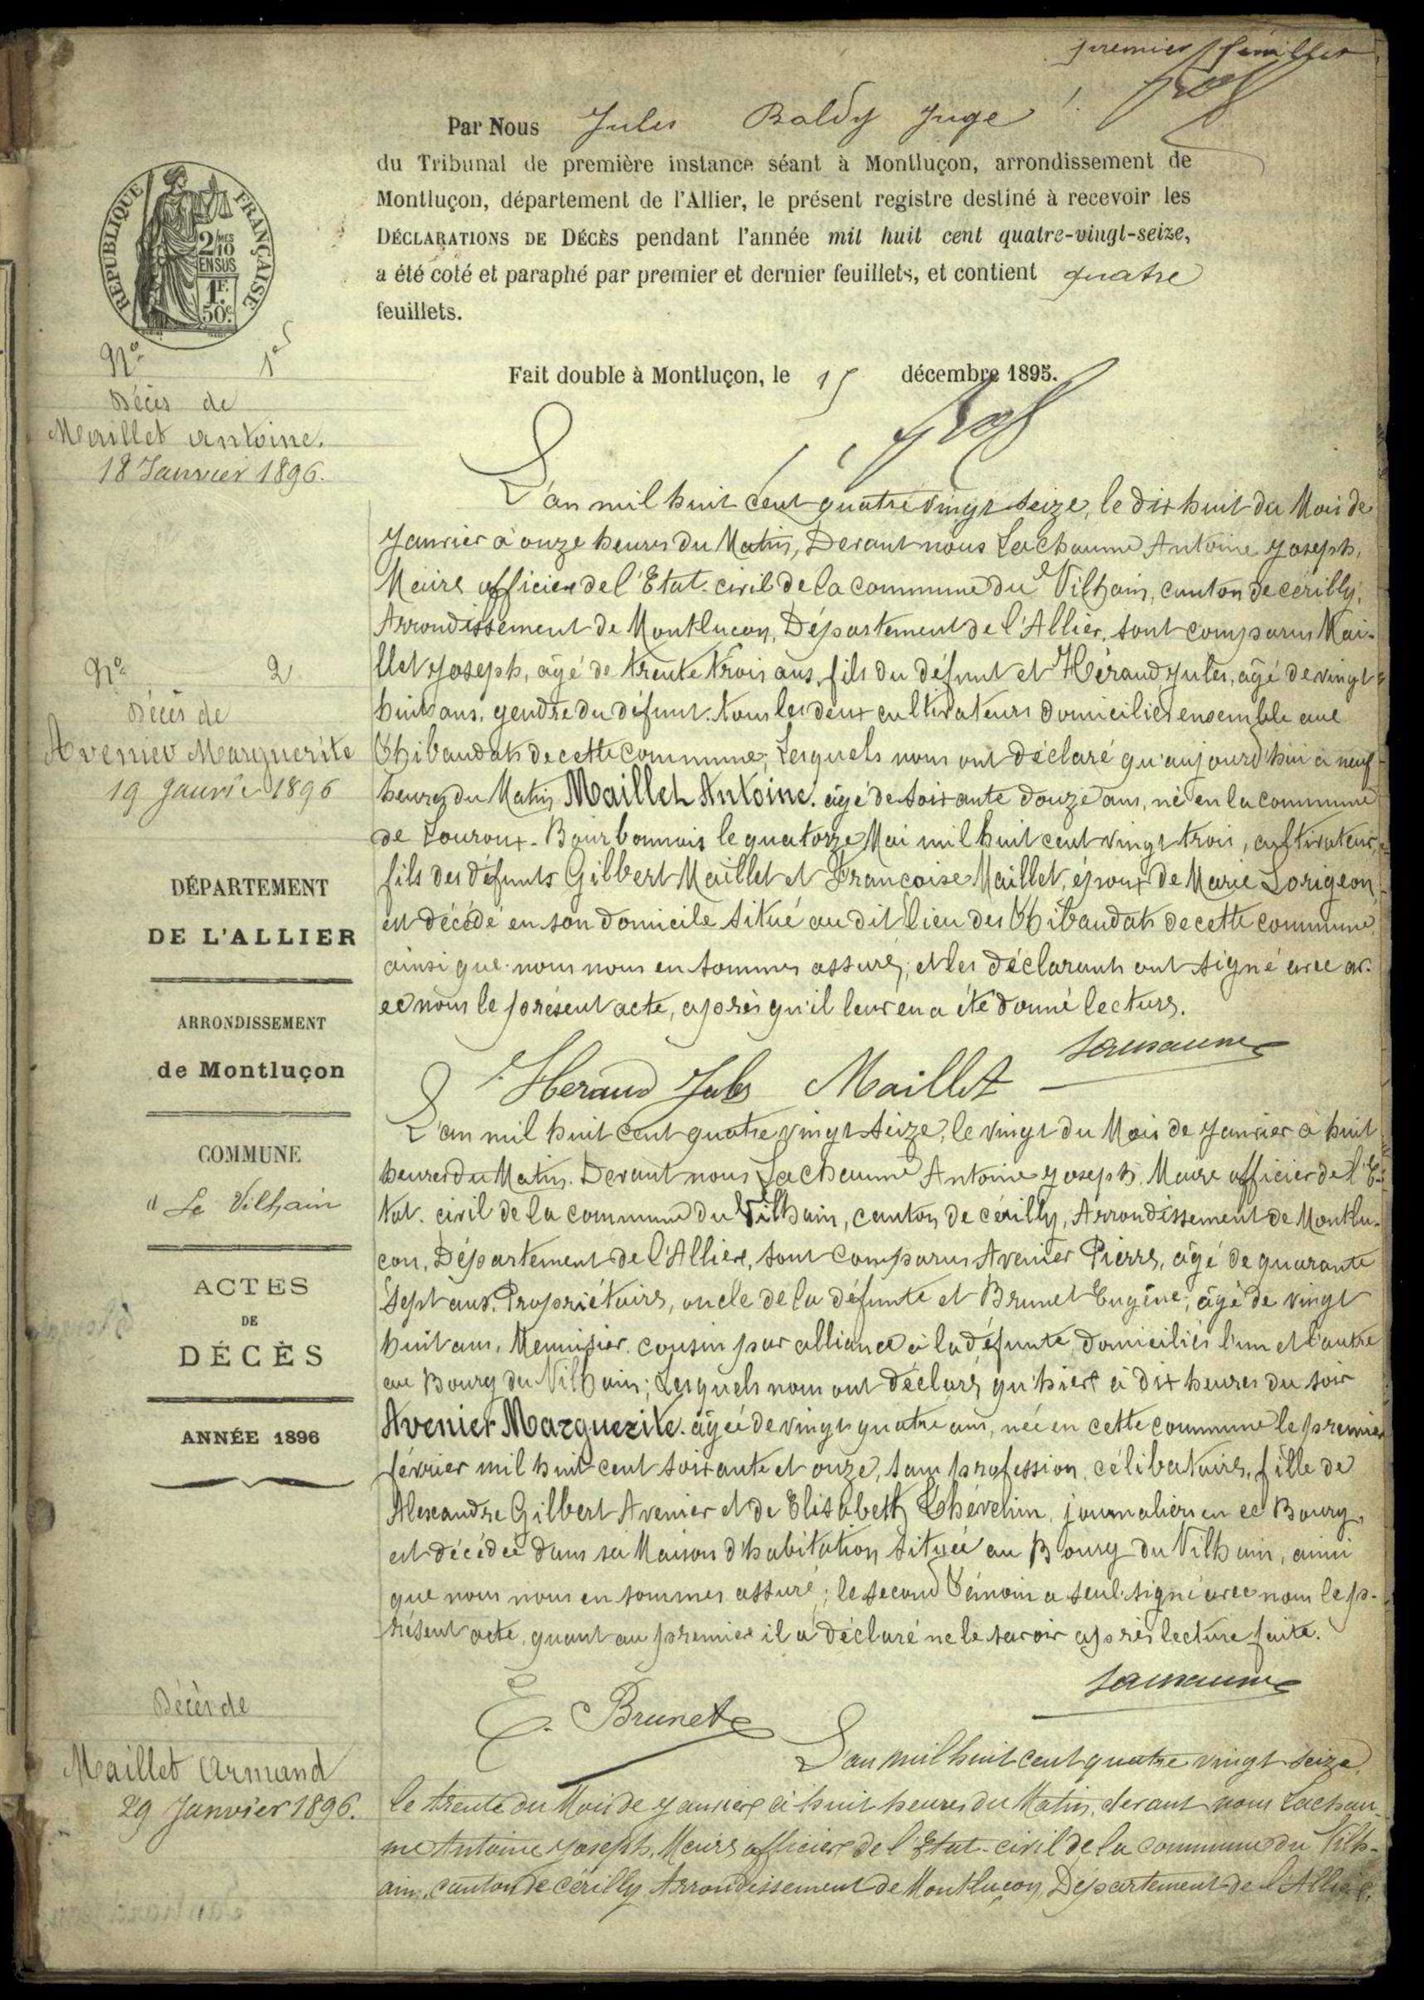 premier feuillet
Par Nous Jules Baldy Juge
du Tribunal de première instance séant à Montluçon, arrondissement de
Montluçon, département de l'Allier, le présent registre destiné à recevoir les
DÉCLARATIONS DE DÉCÈS pendant l'année mil huit cent quatre-vingt-seize,
a été coté et paraphé par premier et dernier feuillets, et contient quatre
feuillets.
Fait double à Montluçon, le 15 décembre 1895.
RÉPUBLIQUE FRANÇAISE
2/10 EN SUS
1F. 50c.
N° 1er
Décès de
Maillet Antoine.
18 Janvier 1896.
L'an mil huit cent quatre vingt seize, le dix huit du Mois de
Janvier à onze heures du Matin, Devant nous Lachaume Antoine Joseph,
Maire officier de l'Etat-civil de la commune du Vilhain, canton de cérilly,
Arrondissement de Montluçon, Département de l'Allier, sont comparus Mai-
llet Joseph, âgé de trente trois ans, fils du défunt et Héraud Jules, âgé de vingt
huit ans, gendre du défunt, tous les deux cultivateurs domiciliés ensemble aux
Thibaudats de cette commune; Lesquels nous ont déclaré qu'aujourd'hui à neuf
heures du Matin, Maillet Antoine, âgé de soixante douze ans, né en la commune
de Louroux-Bourbonnais le quatorze Mai mil huit cent vingt trois, cultivateur,
fils des défunts Gilbert Maillet et Françoise Maillet, époux de Marie Lorigeon,
est décédé en son domicile situé au dit lieu des Thibaudats de cette commune,
ainsi que nous nous en sommes assuré; et les déclarants ont signé avec av-
ec nous le présent acte, après qu'il leur en a été donné lecture.
Heraud Jules Maillet Lachaume
N° 2
Décès de
Avenier Marguerite
19 Janvier 1896
L'an mil huit cent quatre vingt seize, le vingt du Mois de Janvier à huit
heures du Matin. Devant nous Lachaume Antoine Joseph, Maire officier de l'E-
tat-civil de la commune du Vilhain, canton de cérilly, Arrondissement de Montlu-
çon, Département de l'Allier, sont comparus Avenier Pierre, âgé de quarante
sept ans, Propriétaire, oncle de la défunte et Brunet Eugène, âgé de vingt
huit ans, Menuisier, cousin par alliance à la défunte, domiciliés l'un et l'autre
au Bourg du Vilhain; Lesquels nous ont déclaré qu'hier à dix heures du soir
Avenier Marguerite, âgée de vingt quatre ans, née en cette commune le premier
février mil huit cent soixante et onze, sans profession, célibataire, fille de
Alexandre Gilbert Avenier et de Elisabeth Thévelin, journaliers en ce Bourg,
est décédée dans sa Maison d'habitation située au Bourg du Vilhain, ainsi
que nous nous en sommes assuré; le second témoin a seul signé avec nous le p-
résent acte, quant au premier il a déclaré ne le savoir après lecture faite.
E. Brunet Lachaume
DÉPARTEMENT
DE L'ALLIER
ARRONDISSEMENT
de Montluçon
COMMUNE
d Le Vilhain
ACTES
DE
DÉCÈS
ANNÉE 1896
Décès de
Maillet Armand
29 Janvier 1896.
L'an mil huit cent quatre vingt seize,
le trente du Mois de Janvier à huit heures du Matin, devant nous Lachau-
me Antoine Joseph, Maire officier de l'Etat-civil de la commune du Vilh-
ain, canton de cérilly, Arrondissement de Montluçon, Département de l'Allier,